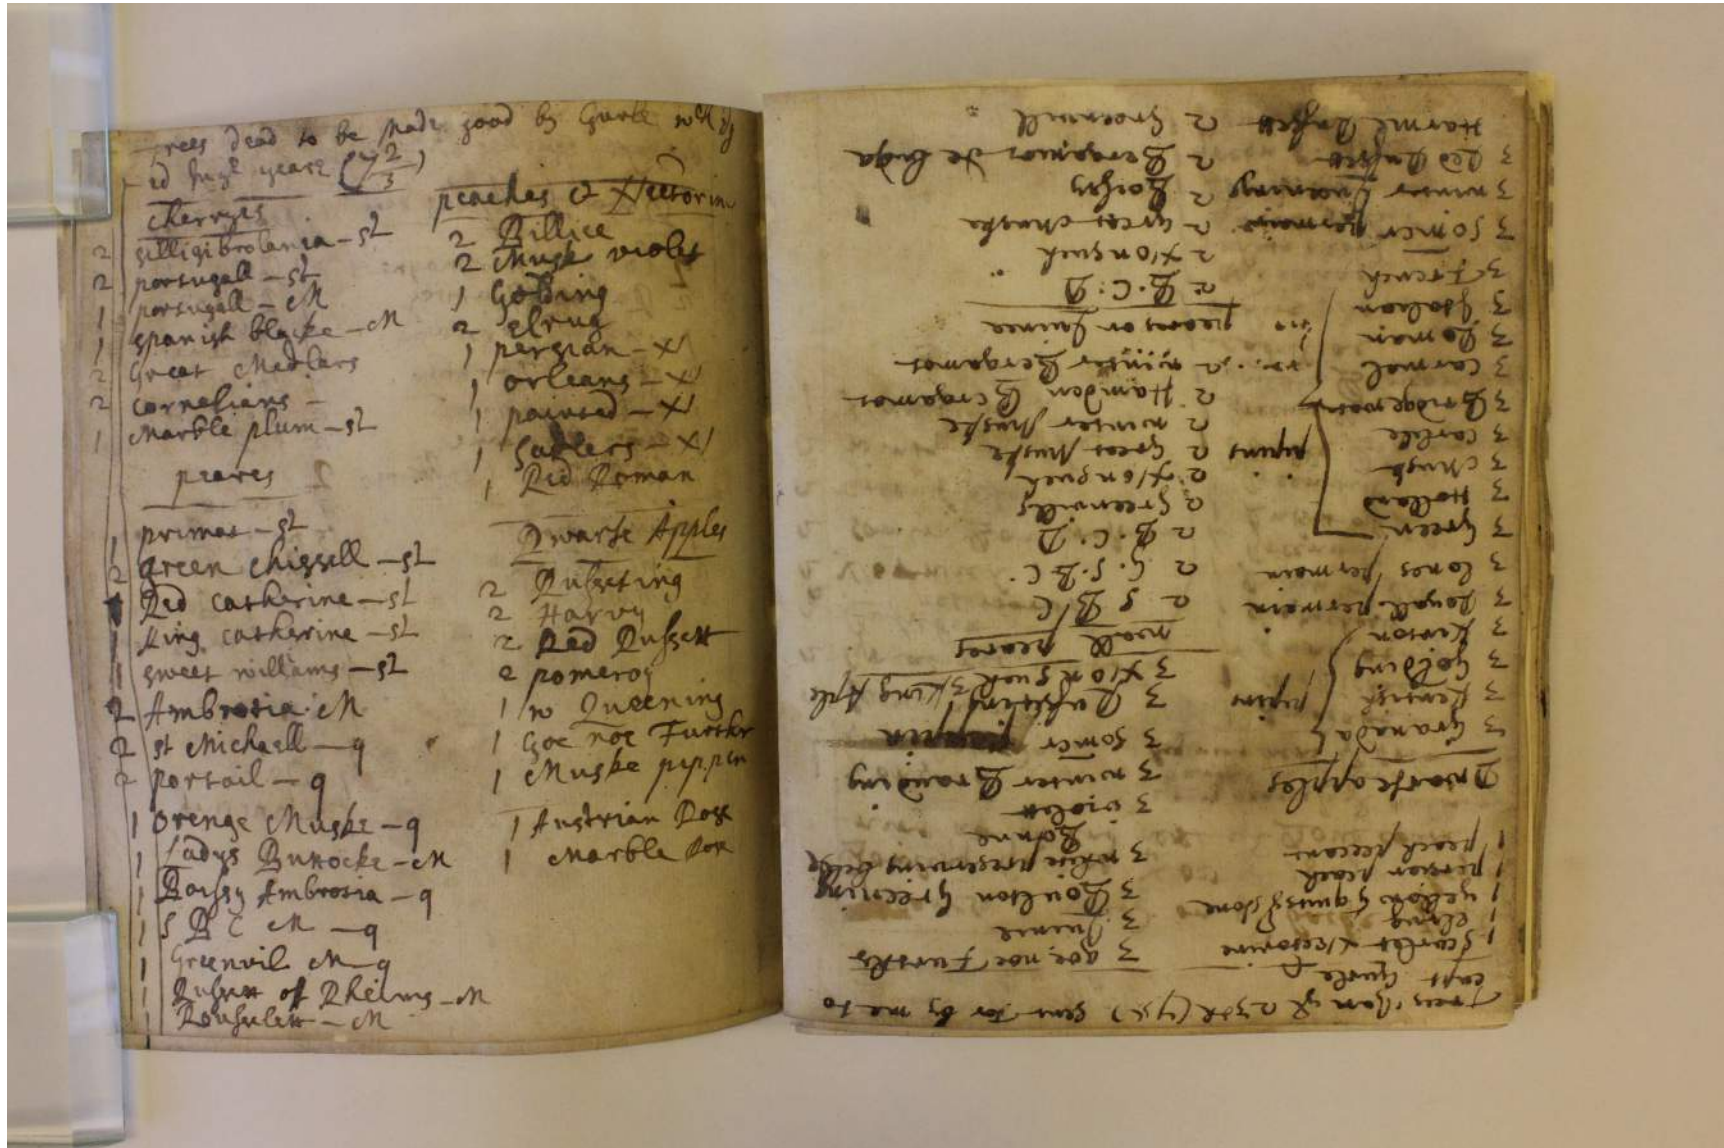 Trees dead to be made good by Gurle
cherryes
2 silligibrolania - st
2 portugall - st
1 portugall - M
1 spanish blacke - M
2 Great Medlars
2 cornelians -
1 Marble plum - st
peares
1 primat - st
2 Green chissell - st
Red catherine - st
1 King catherine - st
1 sweet williams - st
2 Ambrosia M
2 st Michaell - q
2 portail - q
1 Orenge Muske - q
1 Ladys Buttocke - M
1 Boissy Ambrosia - q
1 S B C M - q
1 Greenvil M - q
1 Russett of Rheims - M
1 Rousselett - M
peaches & Nectorin
2 Billice
2 Musk violet
1 Golding
2 elrug
1 persian - N
1 orleans - N
1 painted - N
1 Sadlers - N
1 Red Roman
Dwarfe Apples
2 Russeting
2 Harvy
2 Red Russett
2 pomeroy
1 w Queening
1 Goe noe Further
1 Muske pippin
1 Austrian Rose
1 Marble Rose
sent for by me to
capt Gurle
1 Scarlet Nectorine
1 elrug
1 persian peach
Dwarfe apples
3 Granada
3 Kentish pipins
3 Golding
3 Kirton
3 Royall permain
3 Lones permain
3 Green
3 Holland
3 Musk
3 Carlile pipins
3 Bridgewater
3 Carmel
3 Romain
3 Italian
3 French
3 Somer permain
3 winter Queening
3 Red Russett
Harme Russett
3 goe noe Further
3 Quinne
3 Boulton Greening
3 white preserving
3 violett
3 winter Branding
3 Somer pippin
3 Russeting 3 King Aple
3 Nonsuch
wall peares
2 S B C
2 G. S. B C.
2 B. C. D
2 Greenvill
2 Nonsuch
2 Great Muske
2 winter Muske
2 Hamden Bergamot
2 winter Bergamot
peares on Quince
2 B. C. D
2 Nonsuch
2 Great Muske
2 Boissy
2 Bergamot de Buga
2 Greenvill